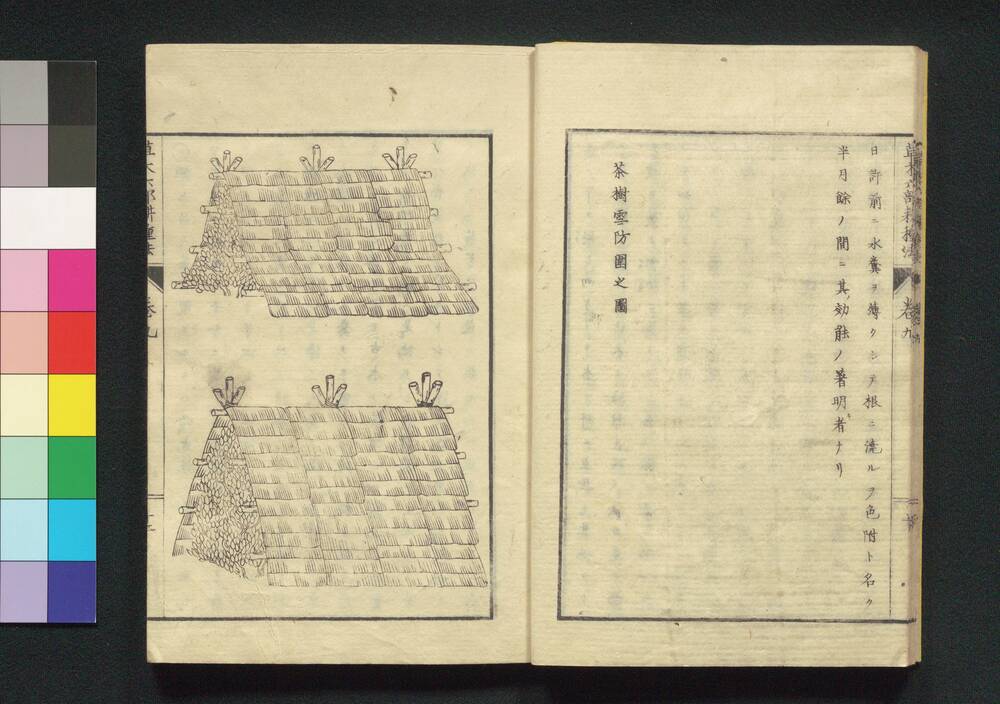 日許前ニ水糞ヲ薄クシテ根ニ澆ルヲ色附ト名ク
半月餘ノ間ニ其効能ノ著明者ナリ
茶樹雪防圍之圖
草木六部耕種法
卷九